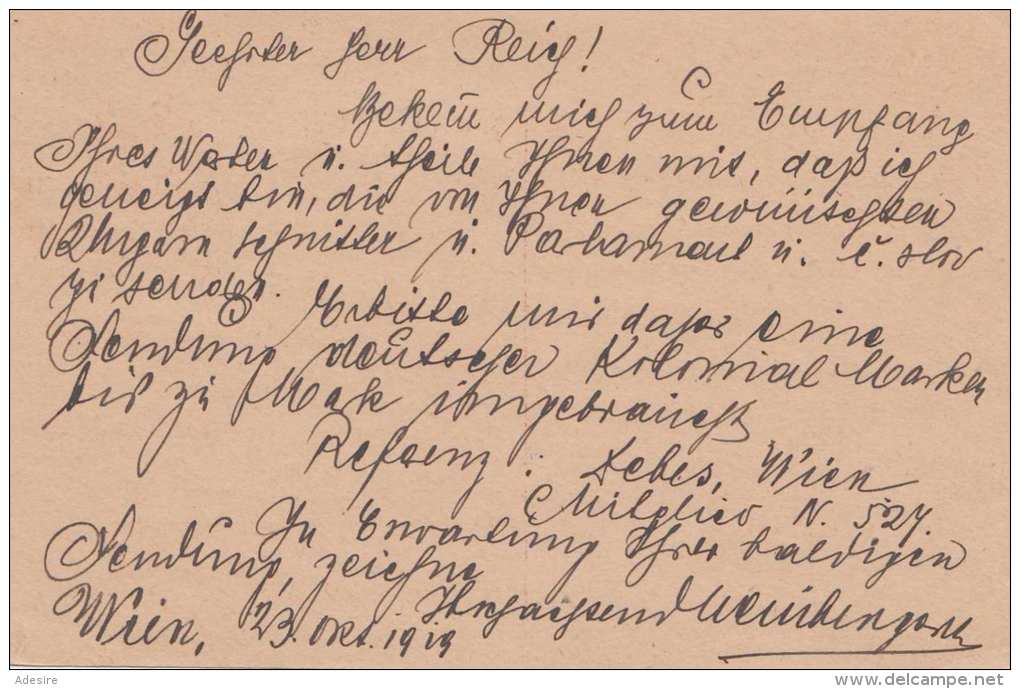 Geehrter Herr Reich!
Beken̄ mich zum Empfang
Ihres u. theile Ihnen mit, daß ich
geneigt bin, die von Ihnen gewünschten
Ungarn schnitter u. u. č. slov
zu senden.
Erbitte mir dafür eine
Sendung deutscher Kolonial Marken
bis zu Mark ungebraucht
Refrenz: Debes, Wien
Mitglied N. 527.
In Erwartung Ihrer baldigen
Sendung, zeichne
Hochachtend
Wien, 23. Okt. 1919
Adesire
delcampe.net